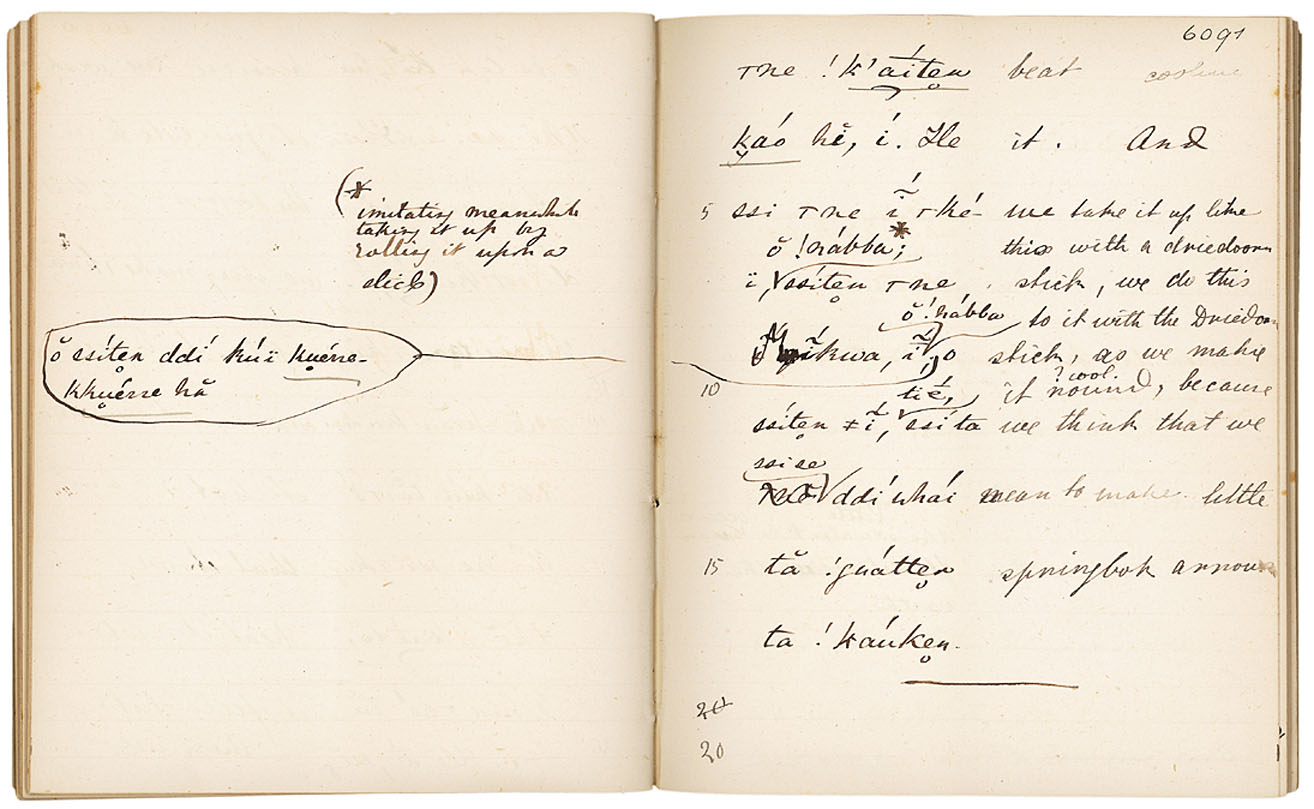 (*
imitating meanwhile
taking it up by
rolling it upon a
stick)
ŏ ssíten̥ ddí kúï ku̥érre-
kku̥érre hă
6091
тne ! k' aíte̥n beat cooling
k̥áó hĕ, í. He it. And
5 ssi тne ĩ́ тké- we take it up like
ŏ !nábba*; this with a driedoorn
ï, ssíte̥n тne stick, we do this
ŏ !nábba to it with the Driedoorn
ĩkwa, ĩ, o stick, as we make
10 tié, it round, ? cool. because
ssíte̥n ≠ ĩ́, ssíta we think that we
ssi se
ddí wháí mean to make little
15 tă !guátte̥n springbok arrow
ta ! káuke̥n.
20
20